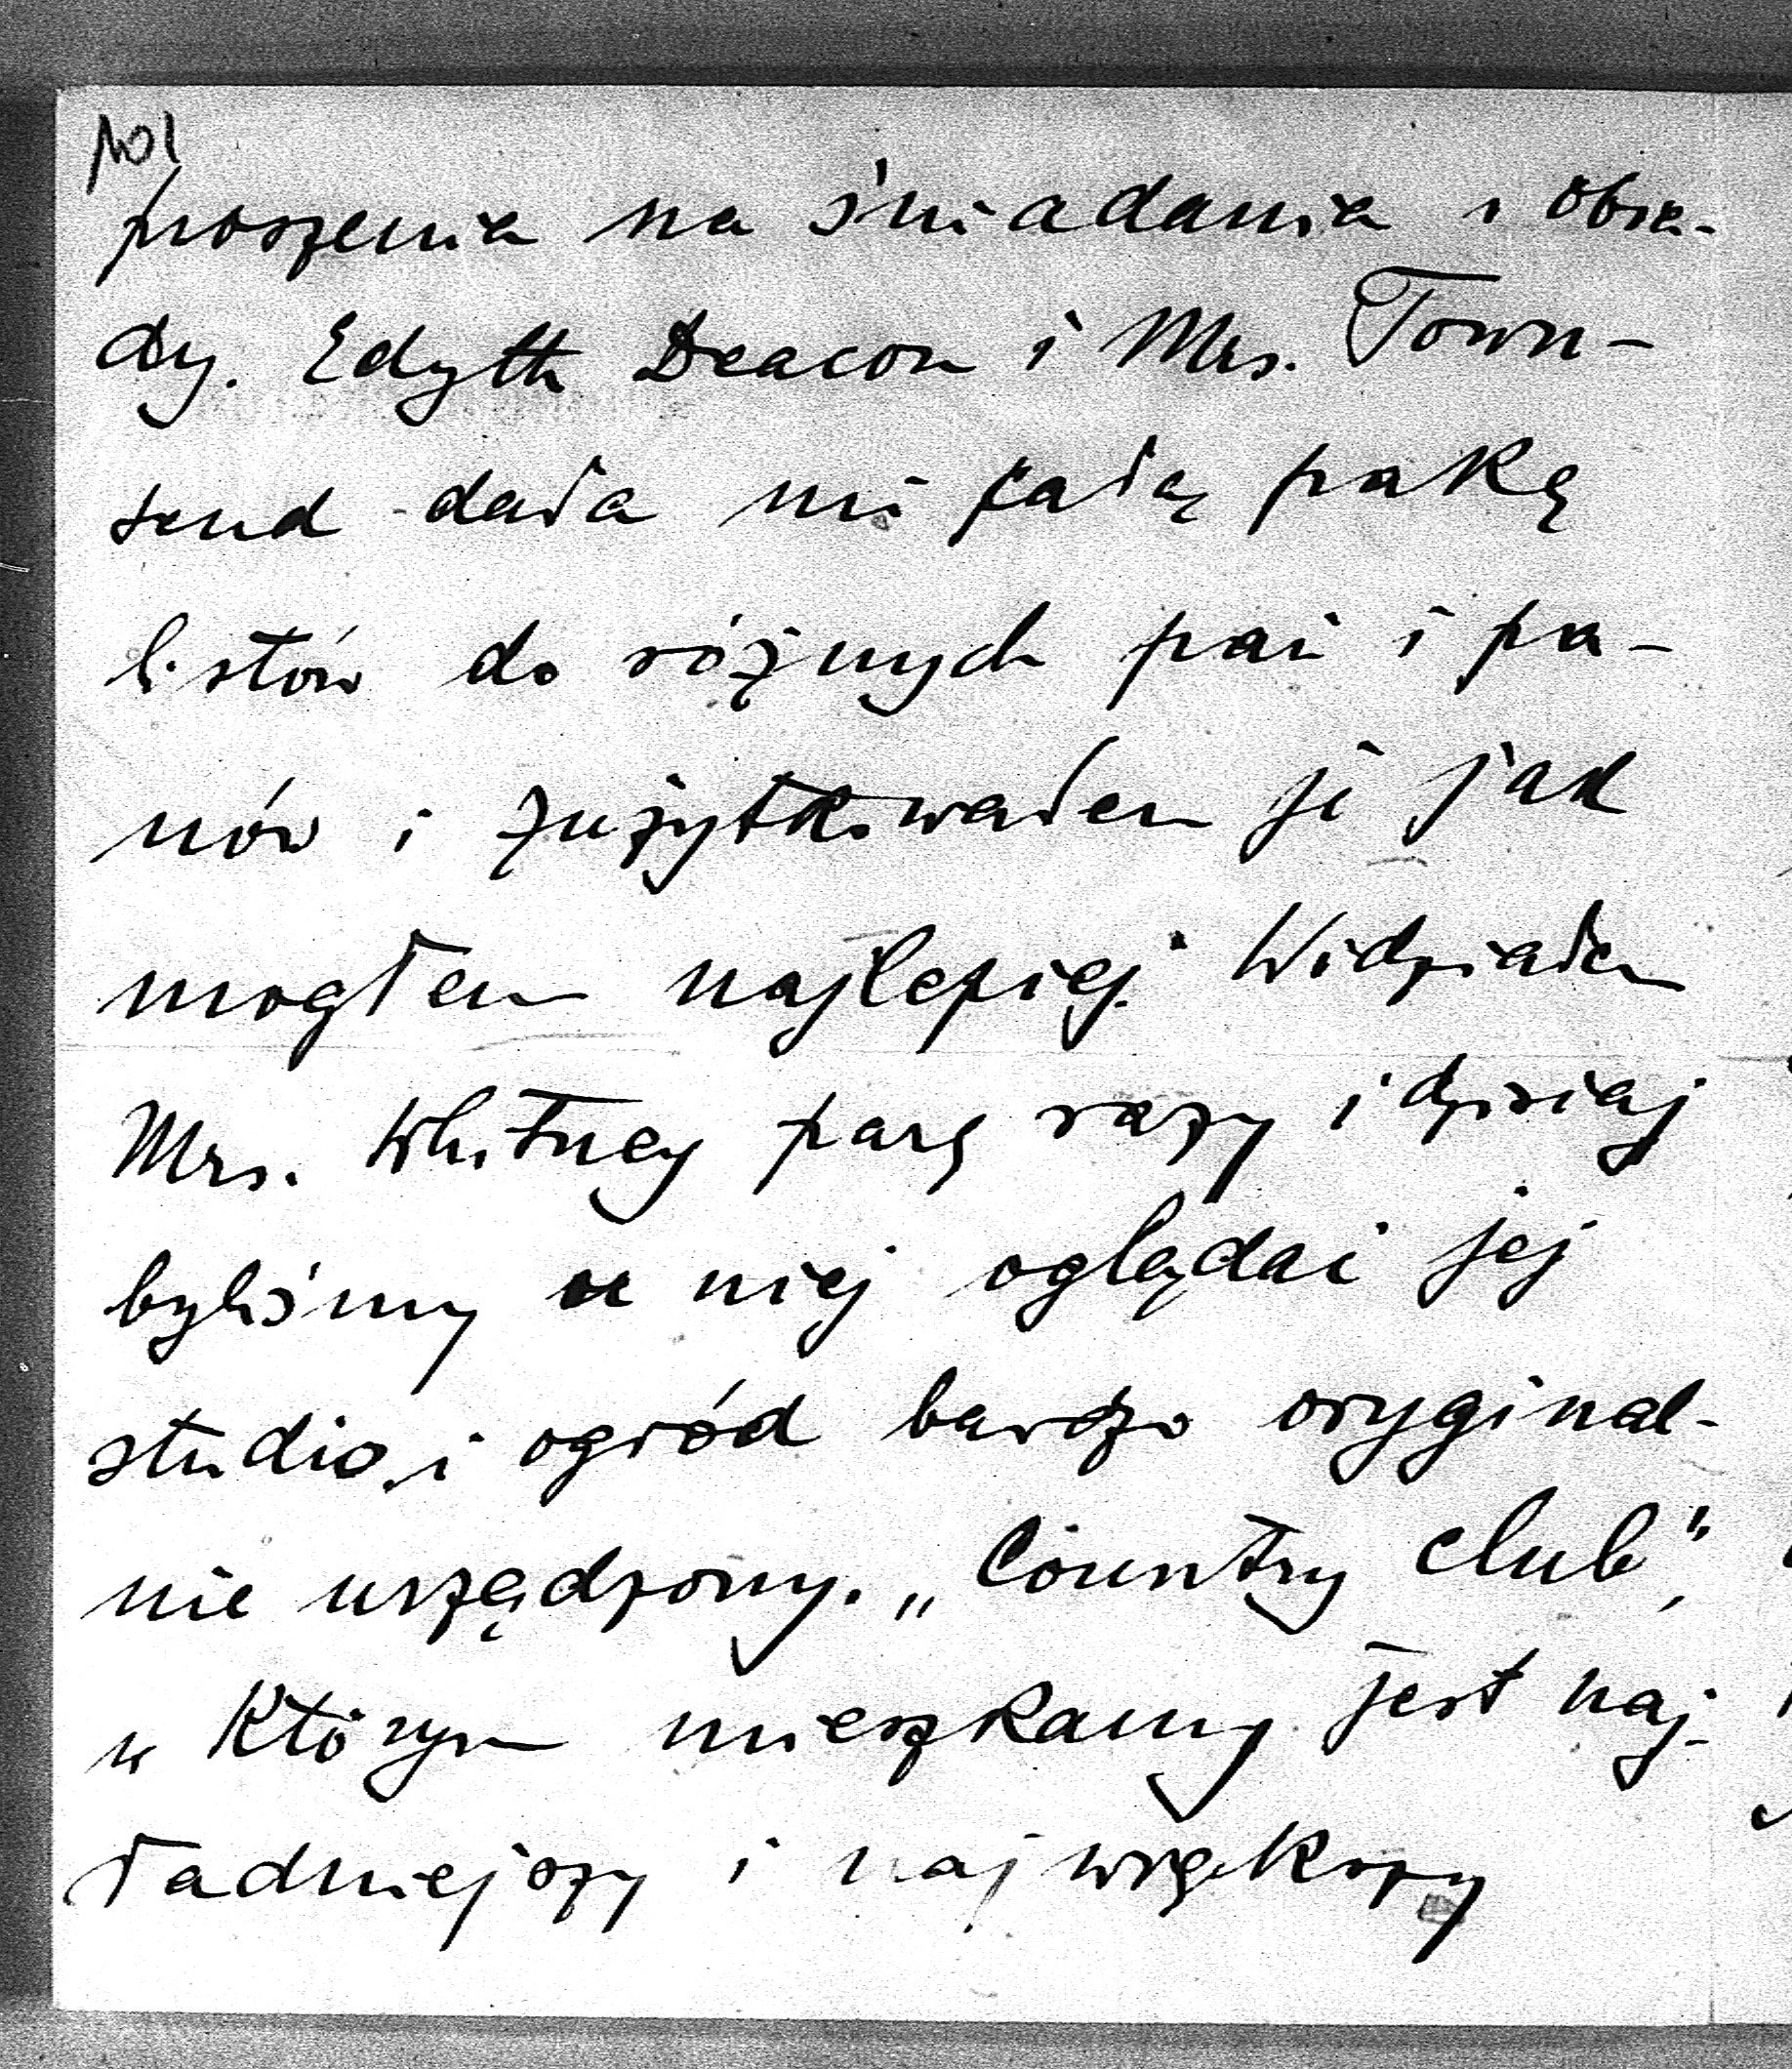 101
proszenia na śniadania i obia-
dy. Edyth Deacon i Mrs. Town-
send dała mi całą pakę
listów do różnych pań i pa-
nów i zużytkowałem je jak
mogłem najlepiej. Widziałem
Mrs. Whitney parę razy i dzisiaj
byliśmy u niej oglądać jej
studio i ogród bardzo oryginal-
nie urządzony. „Country club",
w którym mieszkamy jest naj-
ładniejszy i największy